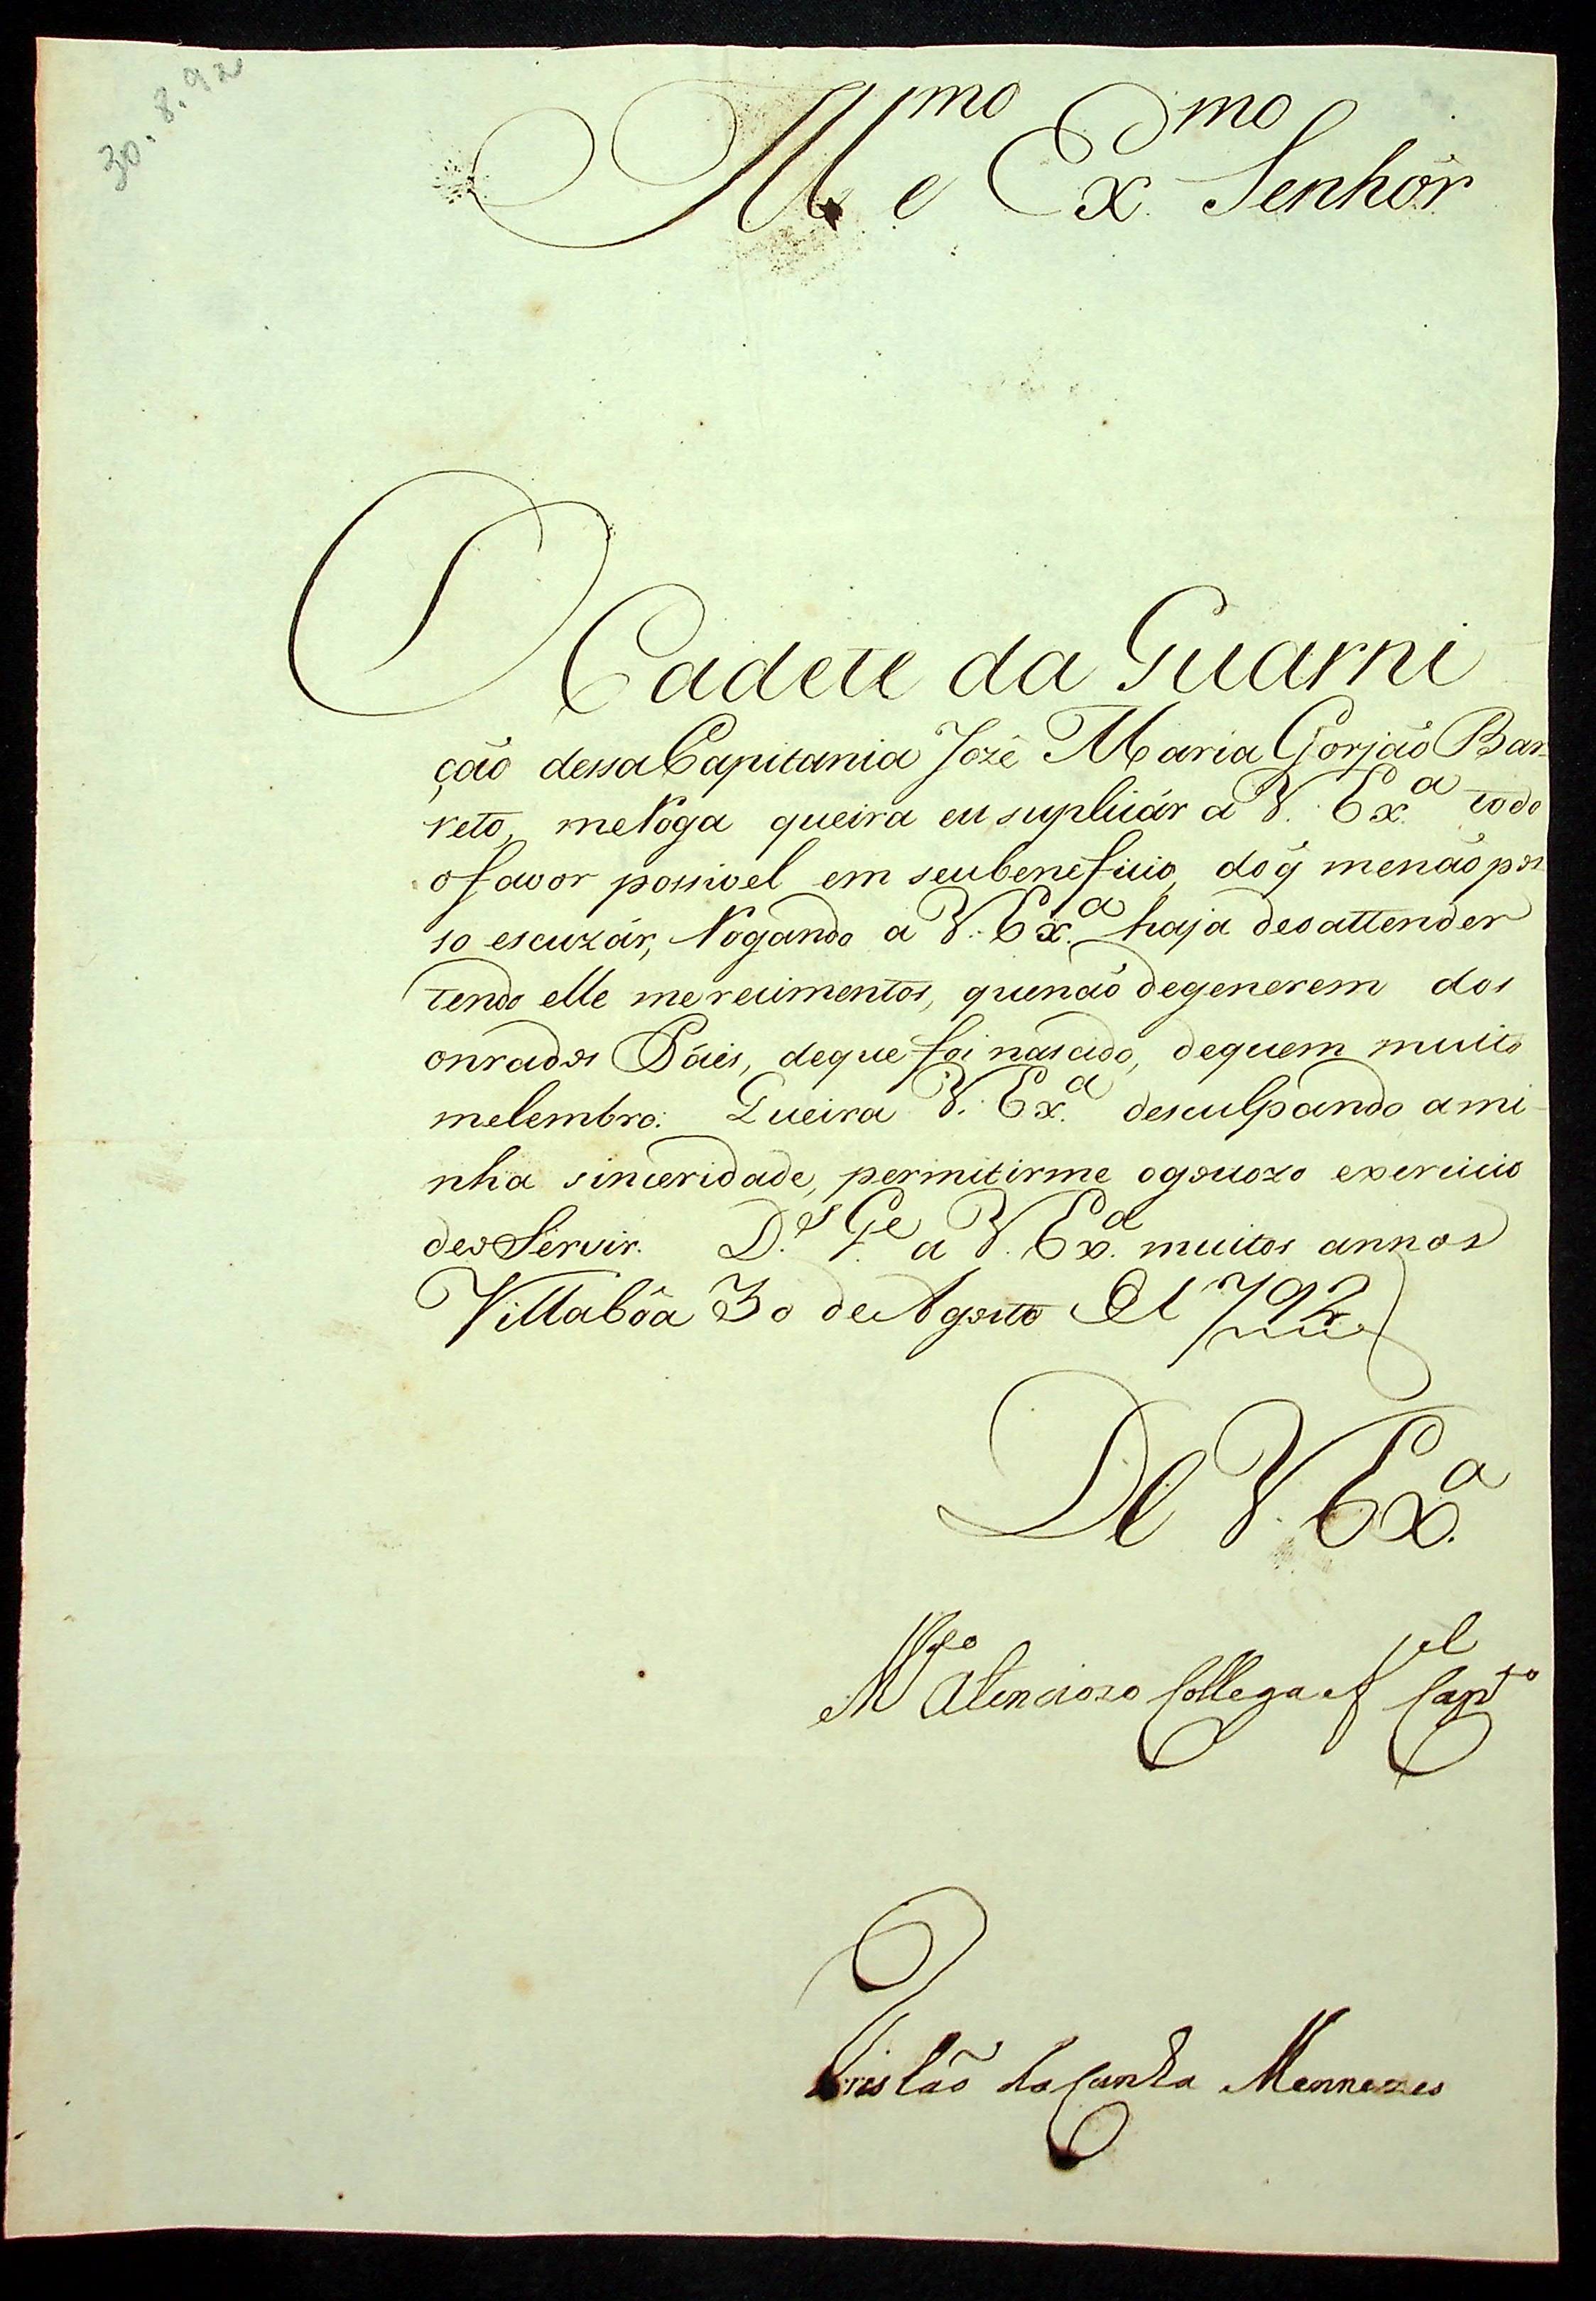 30.8.92
Ill.mo e Ex.mo Senhor
O Cadete da Guarni
ção dessa Capitania Jozê Maria Gorjaõ Bar-
reto, me Roga queira eu suplicár a V. Ex.a todo
o favor possivel em seu beneficio, do q̃ me naõ pos-
so escuzár, Rogando a V. Ex.a haja de o attender
tendo elle merecimentos, que naõ degenerem dos
onrados Páis, de que foi nascido, de quem muito
me lembro. Queira V. Ex.a desculpando a mi-
nha sinceridade, permitirme o gostozo exercicio
de o Servir. D.s G.e a V. Ex.a muitos annos
Villa bôa 30 de Agosto de 1792
De V. Ex.a
M.to atencioso Collega e fiel Cap.to
Tristaõ da Cunha Mennezes